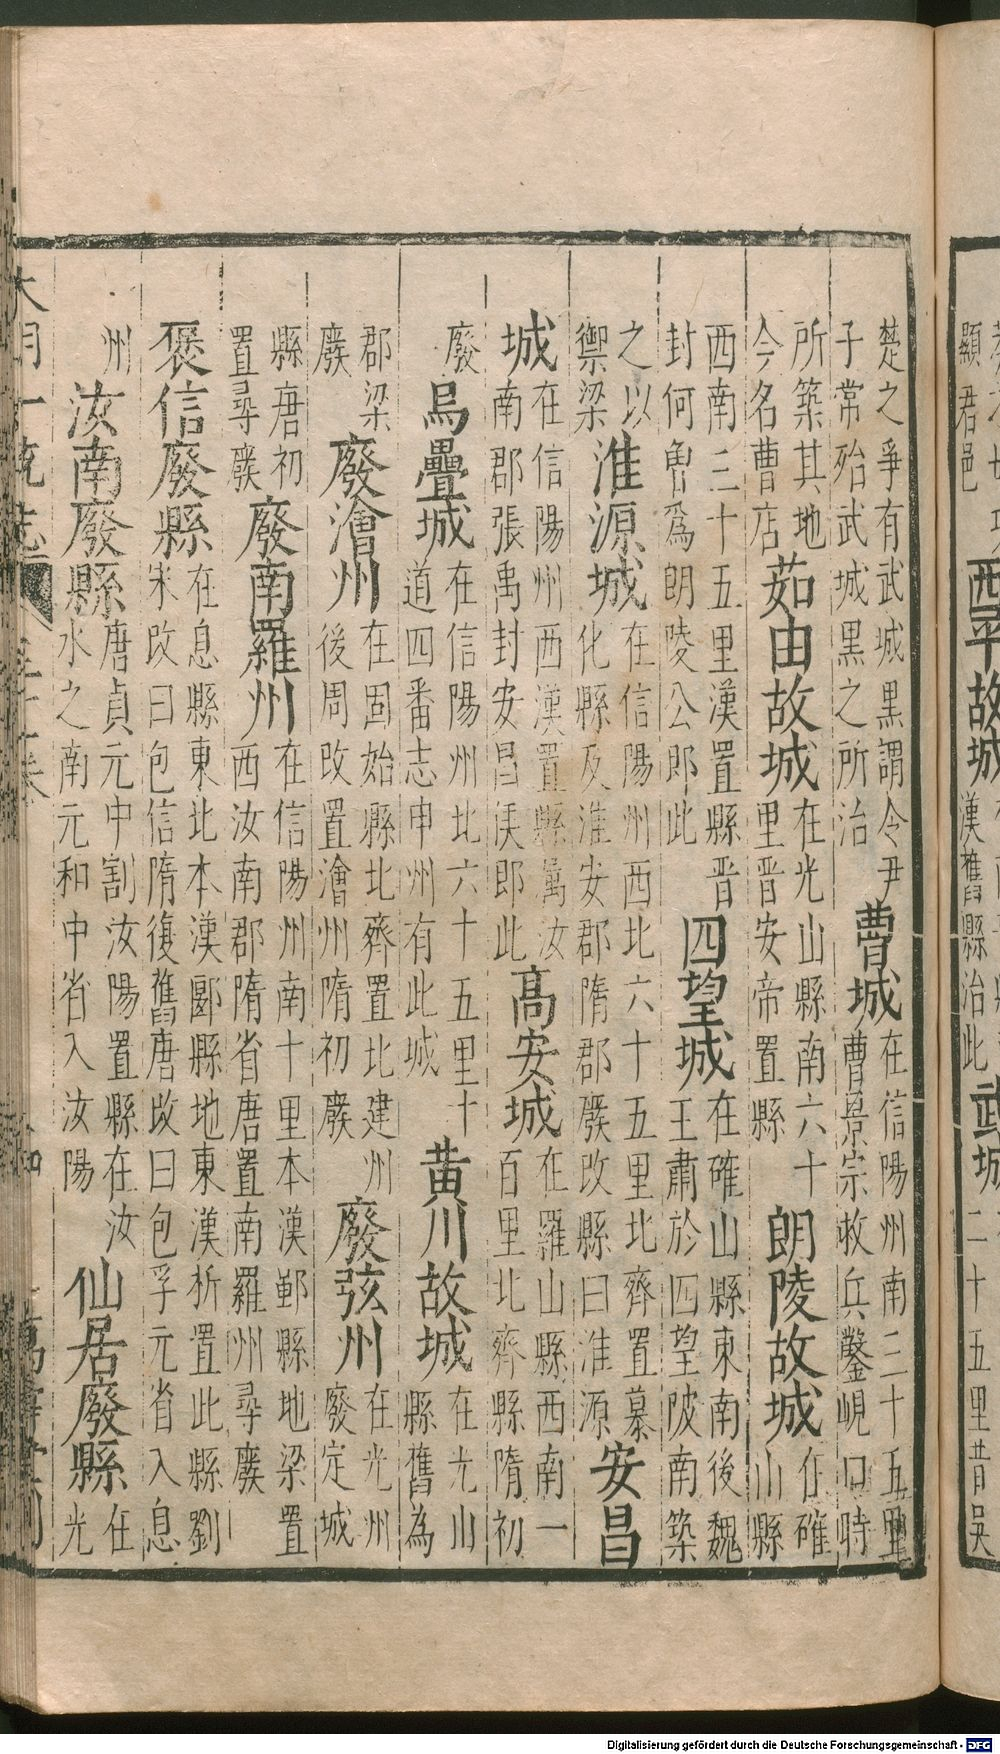 顯君邑
西平故城
漢舊縣治此
武城
二十五里昔吳
楚之爭有武城黑謂令尹
子常殆武城黑之所治
曹城
在信陽州南三十五里
曹景宗救兵鑿峴口時
所築其地
今名曹店
茹由故城
在光山縣南六十
里晋安帝置縣
朗陵故城
在確
山縣
西南三十五里漢置縣晋
封何曾爲朗陵公郎此
四望城
在確山縣東南後魏
王肅於四望陂南築
之以
禦梁
淮源城
在信陽州西北六十五里北齊置慕
化縣及淮安郡隋郡廢改縣曰淮源
安昌
城
在信陽州西漢置縣屬汝
南郡張禹封安昌侯郎此
高安城
在羅山縣西南一
百里北齊縣隋初
廢
烏疊城
在信陽州北六十五里十
道四番志申州有此城
黃川故城
在光山
縣舊為
郡梁
廢
廢澮州
在固始縣北齊置北建州
後周改置澮州隋初廢
廢弦州
在光州
廢定城
縣唐初
置尋廢
廢南羅州
在信陽州南十里本漢鄳縣地梁置
西汝南郡隋省唐置南羅州尋廢
褒信廢縣
在息縣東北本漢郾縣地東漢析置此縣劉
宋改曰包信隋復舊唐改曰包孚元省入息
州
汝南廢縣
唐貞元中割汝陽置縣在汝
水之南元和中省入汝陽
仙居廢縣
在
光
大明一統志
萬壽堂刊
Digitalisierung gefördert durch die Deutsche Forschungsgemeinschaft - DFG